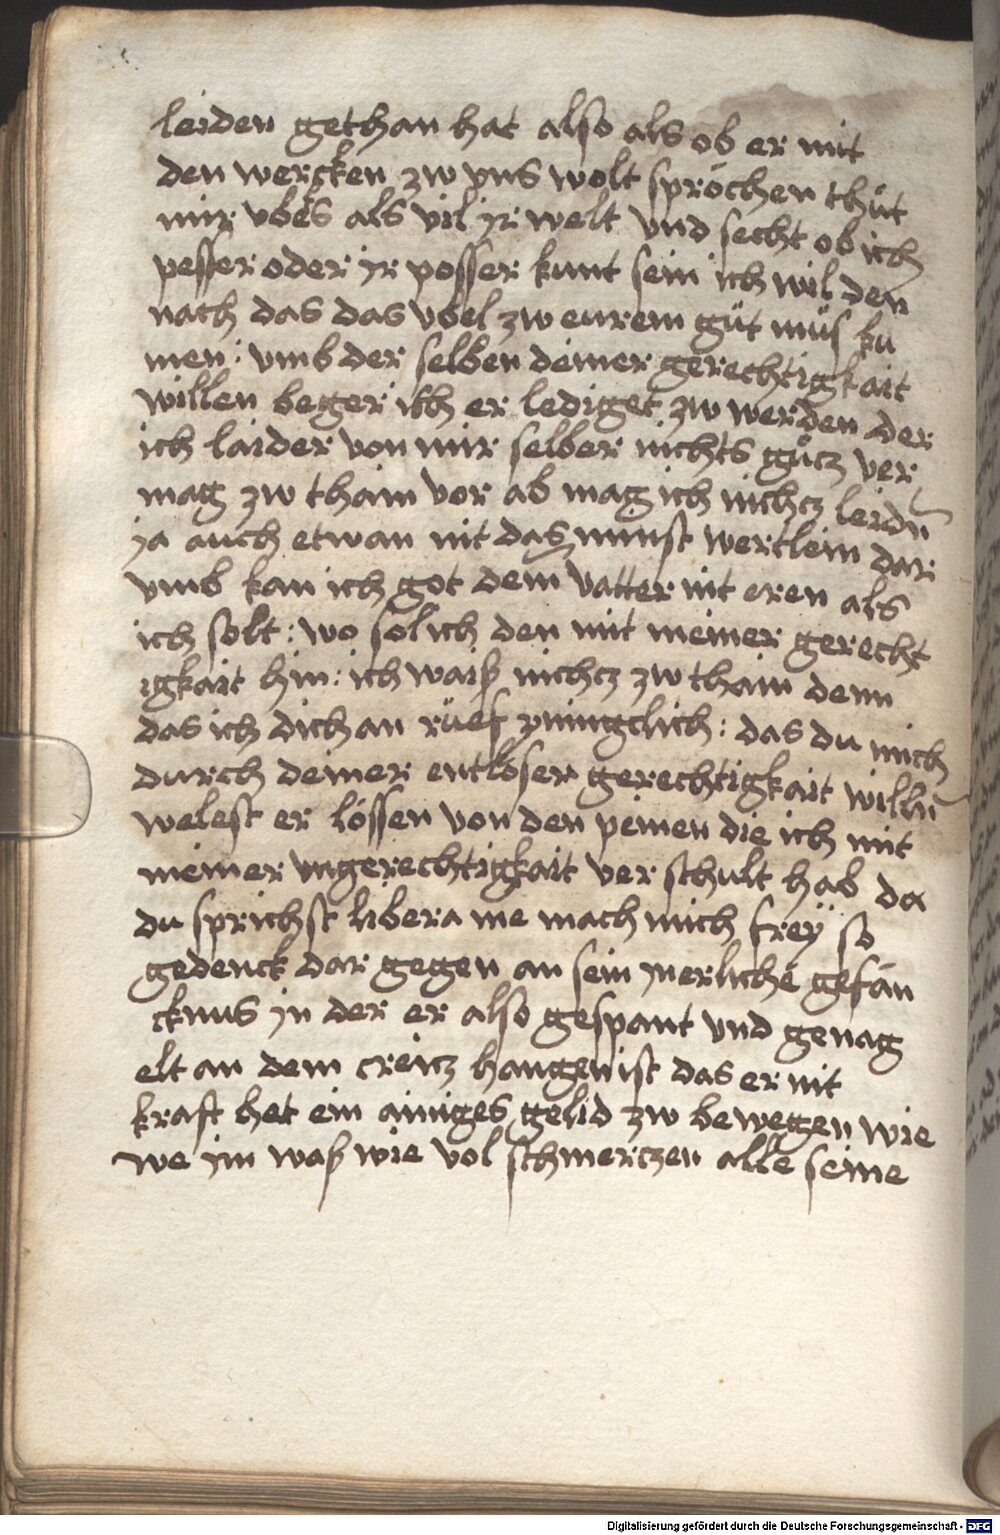 leiden gethan hat also als ob er mit
den wercken zw vns wolt spröchen thůt
mir vbels als vil ir welt vnd secht ob ich
pesser oder ir posser kunt sein ich wil den
nach das das vbel zw eurem gůt můs ku
men : vmb der selben deiner gerechtigkait
willen beger ich er lediget zw werden der
ich laider von mir selber nichts gůtz ver
mag zw thain vor ab mag ich nichcz leidn
ja auch etwan nit das minst wertlein dar
vmb kan ich got dem vatter nit eren als
ich solt : wo sol ich den mit meiner gerecht
igkait hin : ich waiß nichcz zw thain denn
das ich dich an rüef yningclich : das du mich
durch deiner entloser gerechtigkait willn
welest er lössen von den peinen die ich mit
meiner vngerechtigkait ver schult hab da
du sprichst libera me mach mich freÿ so
gedenck dar gegen an sein jnerliche gefan
cknus jn der er also gespant vnd genag
elt an dem creicz hangen ist das er nit
kraft het ein ainiges gelid zw bewegen wie
we jm waß wie vol schmerczen alle seine
Digitalisierung gefördert durch die Deutsche Forschungsgemeinschaft - DFG